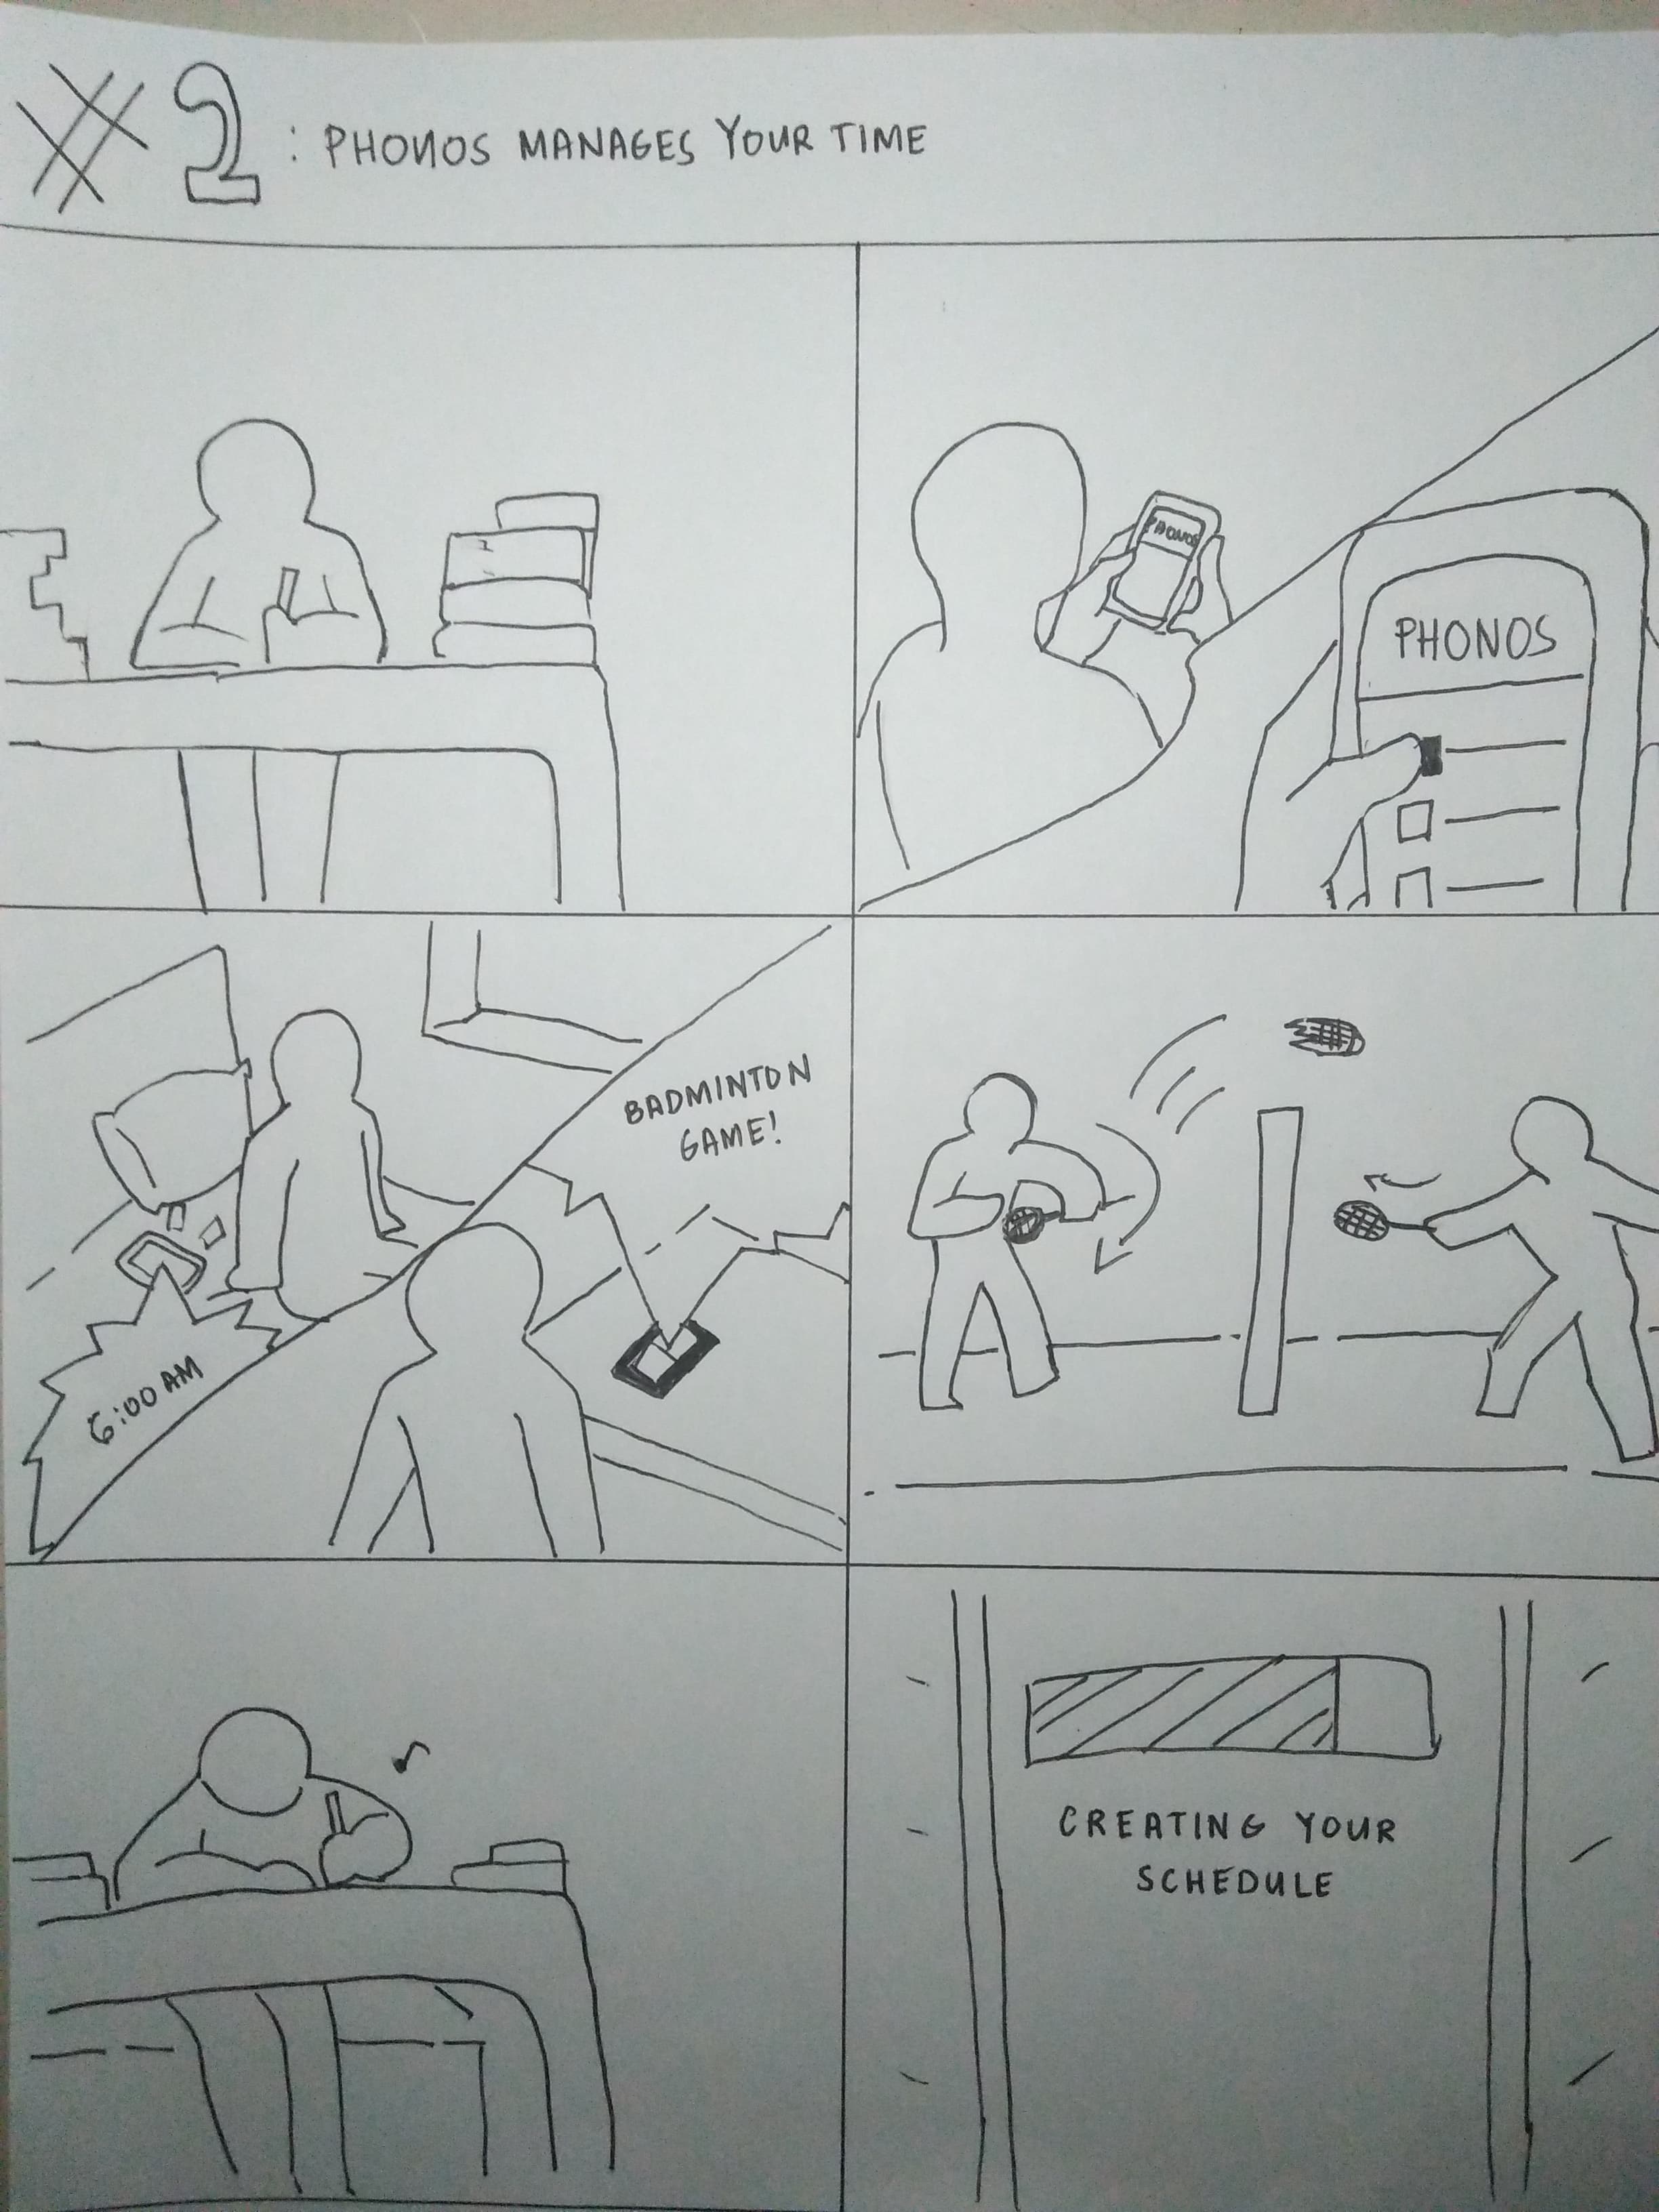 #2 : PHONOS MANAGES YOUR TIME
PHONOS
PHONOS
6:00 AM
BADMINTON
GAME!
CREATING YOUR
SCHEDULE